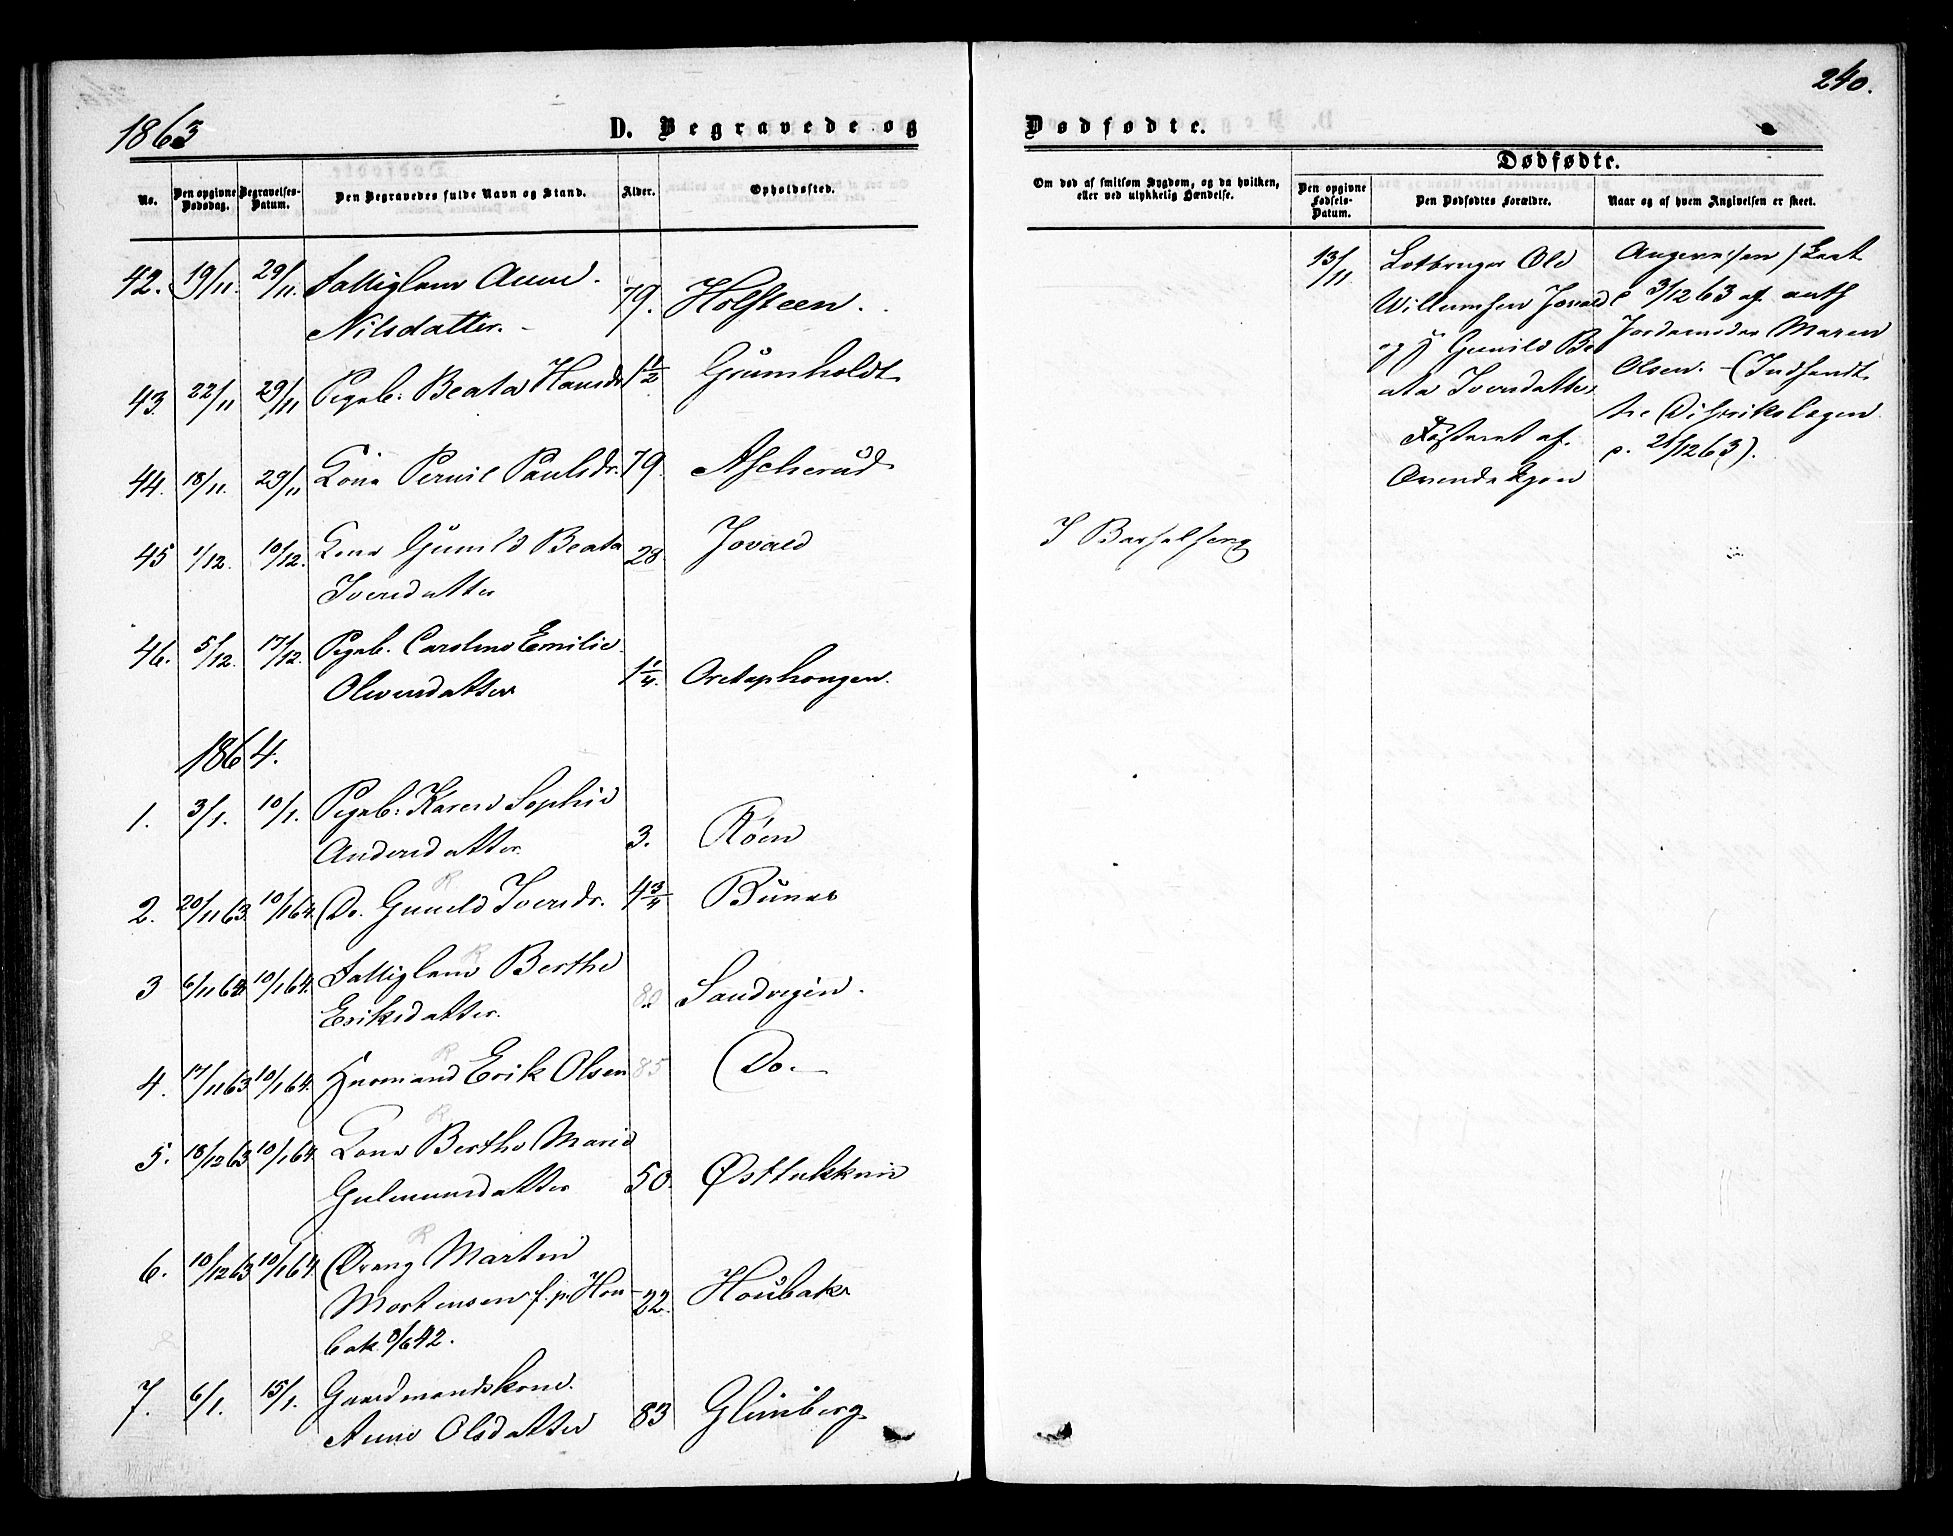 240.
1863
D. Begravede og
Dødfødte.
Dødfødte.
No.
Den opgivne Dødsdag.
Begravelses-Datum.
Den Begravedes fulde Navn og Stand.
Alder.
Opholdssted.
Om død af smitsom Sygdom, og da hvilken, eller ved ulykkelig Hændelse.
Den opgivne Fødsels-Datum.
Den Dødfødtes Forældre.
Naar og af hvem Angivelsen er skeet.
42. 19/11. 29/11. Fattiglem Anne
Nilsdatter. 79. Holsteen.
43. 22/11 29/11 Pigeb. Beata Hansdr 1 1/2 Grumholdt
44. 18/11. 29/11 Kone Pernil Paulsdr. 79. Ascherud
45 1/12. 10/12. Kone Gunild Beata 28 Jovald
Iversdatter
I Barselseng
46. 5/12. 17/12. Pigeb. Caroline Emilie
Oleversdatter 1 1/4.
1864.
1. 3/1. 10/1. Pigeb. Karen Sophie
Andersdatter. 3. Røen
2. 20/11 63. 10/1 64. Do. Guneld Iversdr. 4 3/4 Bunes
3 6/11 63 10/1 64. Fattiglem Berthe
Eriksdatter. 80 Sandvigen.
4. 17/11 63 10/1 64. Huusmand Erik Olsen 85 Do.
5. 18/12 63 10/1 64. Kone Berthe Marie
Gulmunsdatter 50.
6. 10/12 63 10/1 64. Dreng Martin
Mortensen f. p. Hou-
bak 8/6 42. 22. Houbak
7. 6/1. 15/1. Gaardmandskone
Anne Olsdatter 83 Glimberg
13/11. Lotbruger Ole
Willumsen Jovald
og Gunild Be
ata Iversdatter
Fosteret af
Qvindekjøn
Angivelsen skeet
d 3/12 63 af auth
Jordemoder Maren
Olsen. - (Indsendt
til Distrikslægen
d. 21/12 63).